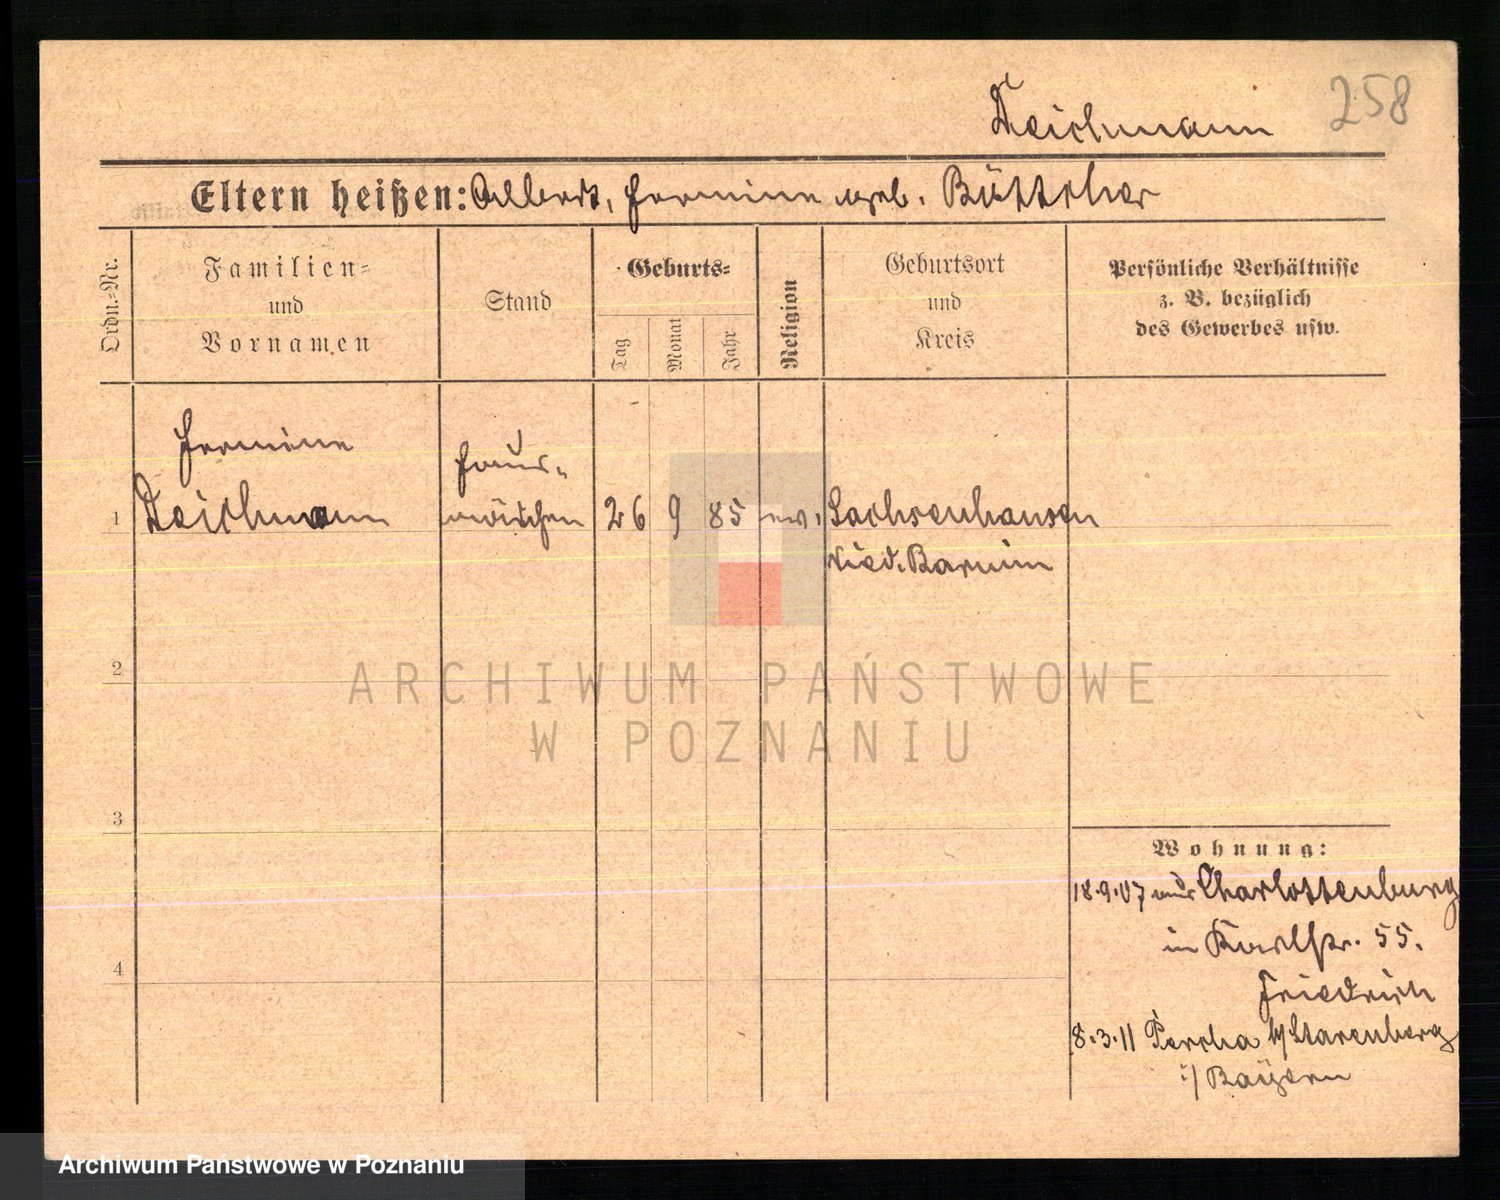 258
Teichmann
Eltern heißen: Albert, Hermine geb. Böttcher
Ordn.-Nr.
Familien-
und
Vornamen
Stand
Geburts-
Tag
Monat
Jahr
Religion
Geburtsort
und
Kreis
Persönliche Verhältnisse
z. B. bezüglich
des Gewerbes usw.
Hermine
Teichmann
Haus-
mädchen
1
26 9 85 ev. Sachsenhausen
Nied. Barnim
2
3
4
ARCHIWUM PAŃSTWOWE
W POZNANIU
Wohnung:
18.9.07 aus Charlottenburg
in Karlstr. 55.
Friedrich
8.3.11 Percha b/Starenberg
i/Bayern
Archiwum Państwowe w Poznaniu